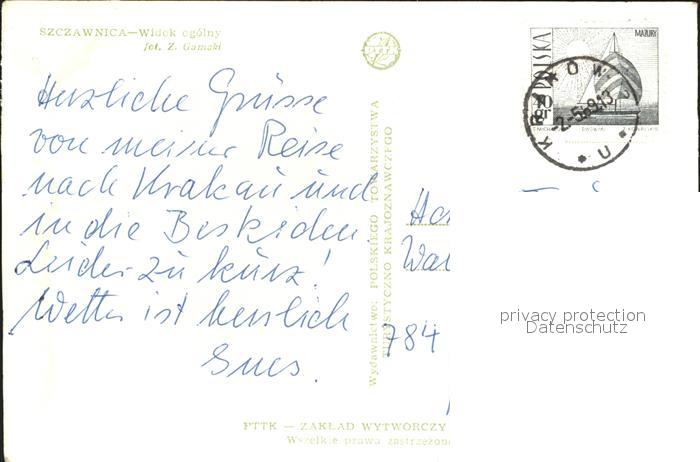 SZCZAWNICA—Widok ogólny
fot. Z. Gamski
POLSKA
MAZURY
40
gr
KRAKÓW 2
-2-5.69.13
U
Herzliche Grüsse
von meiner Reise
nach Krakau und
in die Beskiden.
Leider zu kurz!
Wetter ist herrlich
Wydawnictwo: POLSKIEGO TOWARZYSTWA
TURYSTYCZNO KRAJOZNAWCZEGO
784
privacy protection
Datenschutz
PTTK — ZAKŁAD WYTWÓRCZY
Wszelkie prawa zastrzeżone